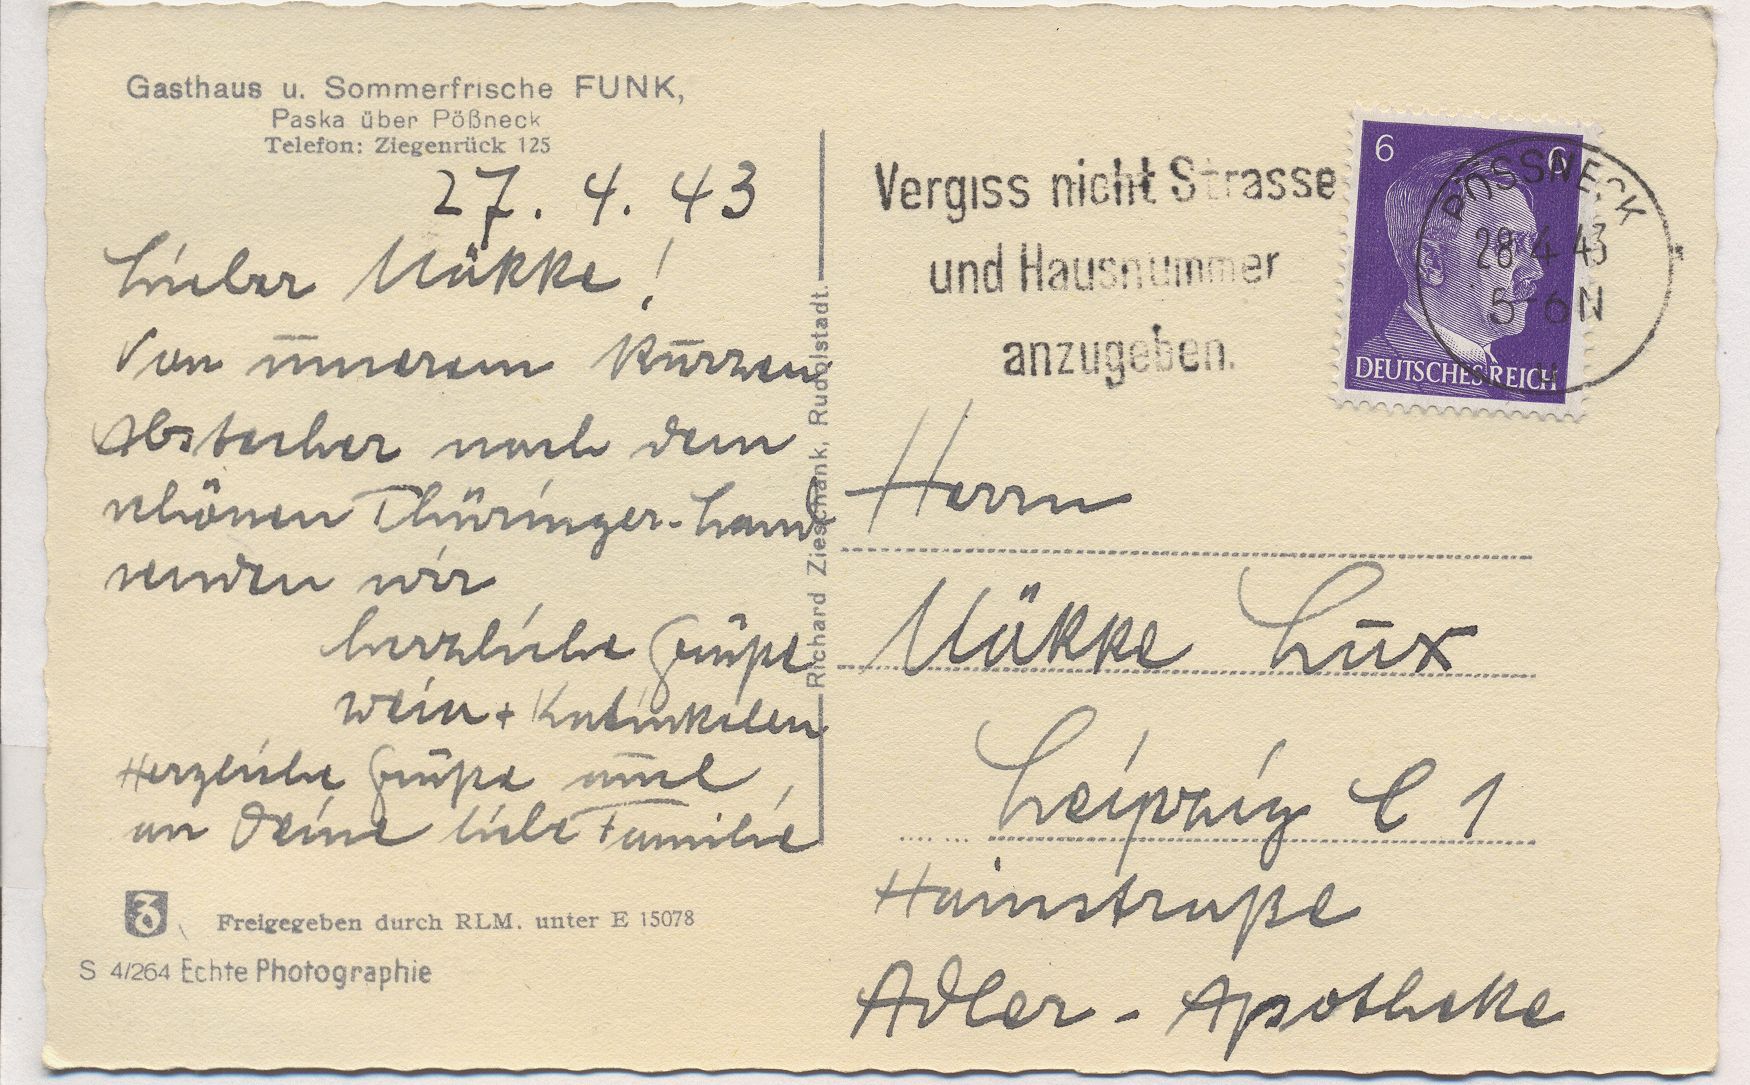 Gasthaus u. Sommerfrische FUNK,
Paska über Pößneck
Telefon: Ziegenrück 125
27. 4. 43
Lieber Mäkke!
Von unserem kurzen
Abstecher nach dem
schönen Thüringer-Land
senden wir
herzliche Grüße
Herzliche Grüße
an Deine liebe Familie
Freigegeben durch RLM. unter E 15078
S 4/264 Echte Photographie
Richard Zieschank, Rudolstadt.
Vergiss nicht Strasse
und Hausnummer
anzugeben.
6 6
DEUTSCHES REICH
PÖSSNECK
28.4.43
5-6 N
Herrn
Mäkke Lux
Leipzig C 1
Hainstraße
Adler-Apotheke